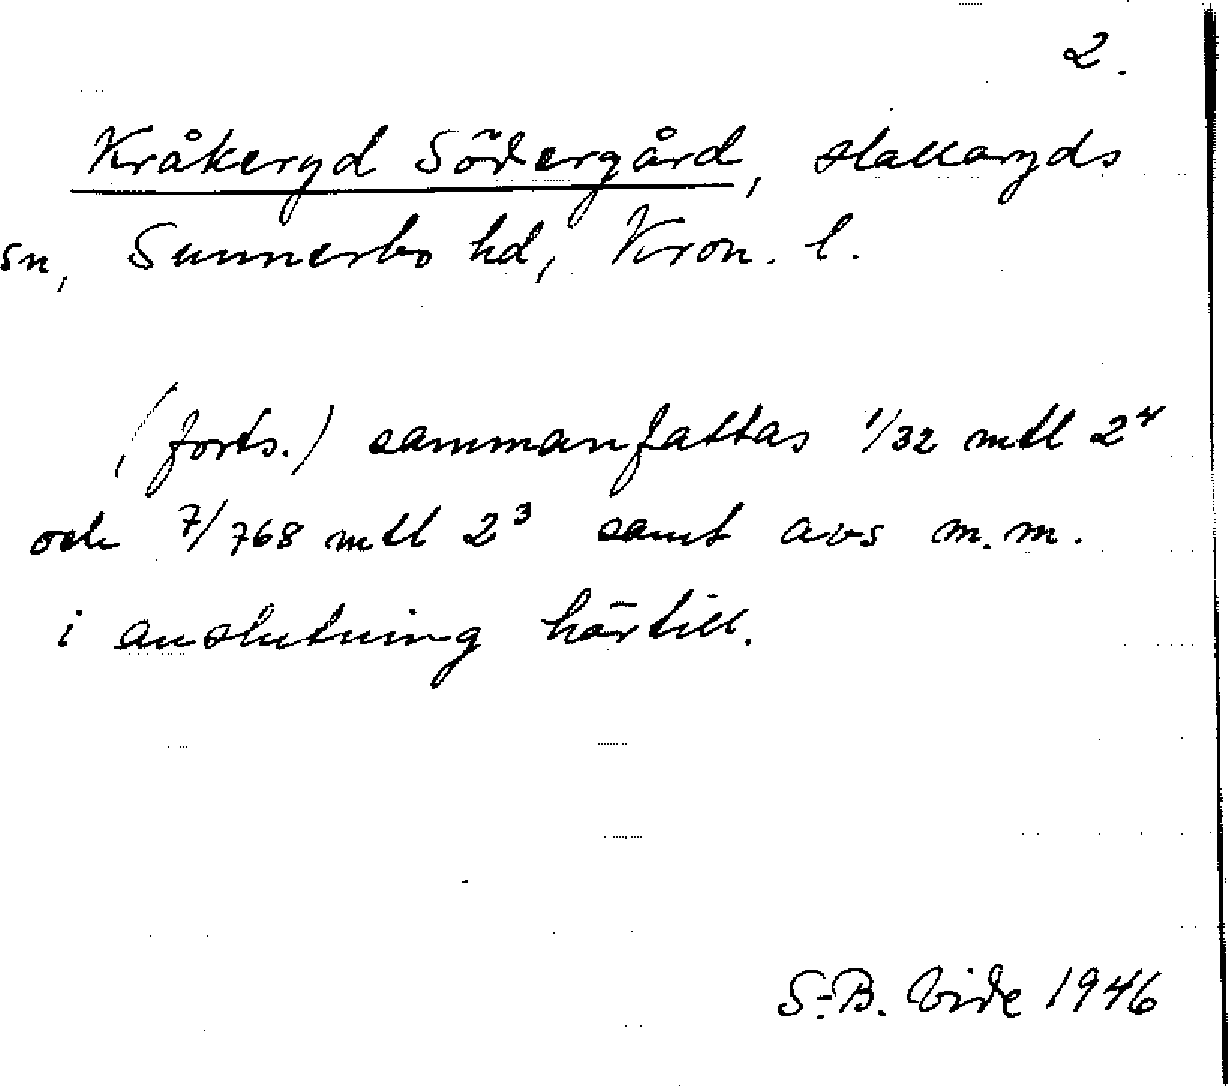 2.
Kråkeryd Södergård, Slattaryds
sn, Sunnerbo hd, Kron. l.
(forts.) sammanfattas 1/32 mtl 2⁴
och 7/768 mtl 2³ samt avs m.m.
i anslutning härtill.
S.-B. Vide 1946